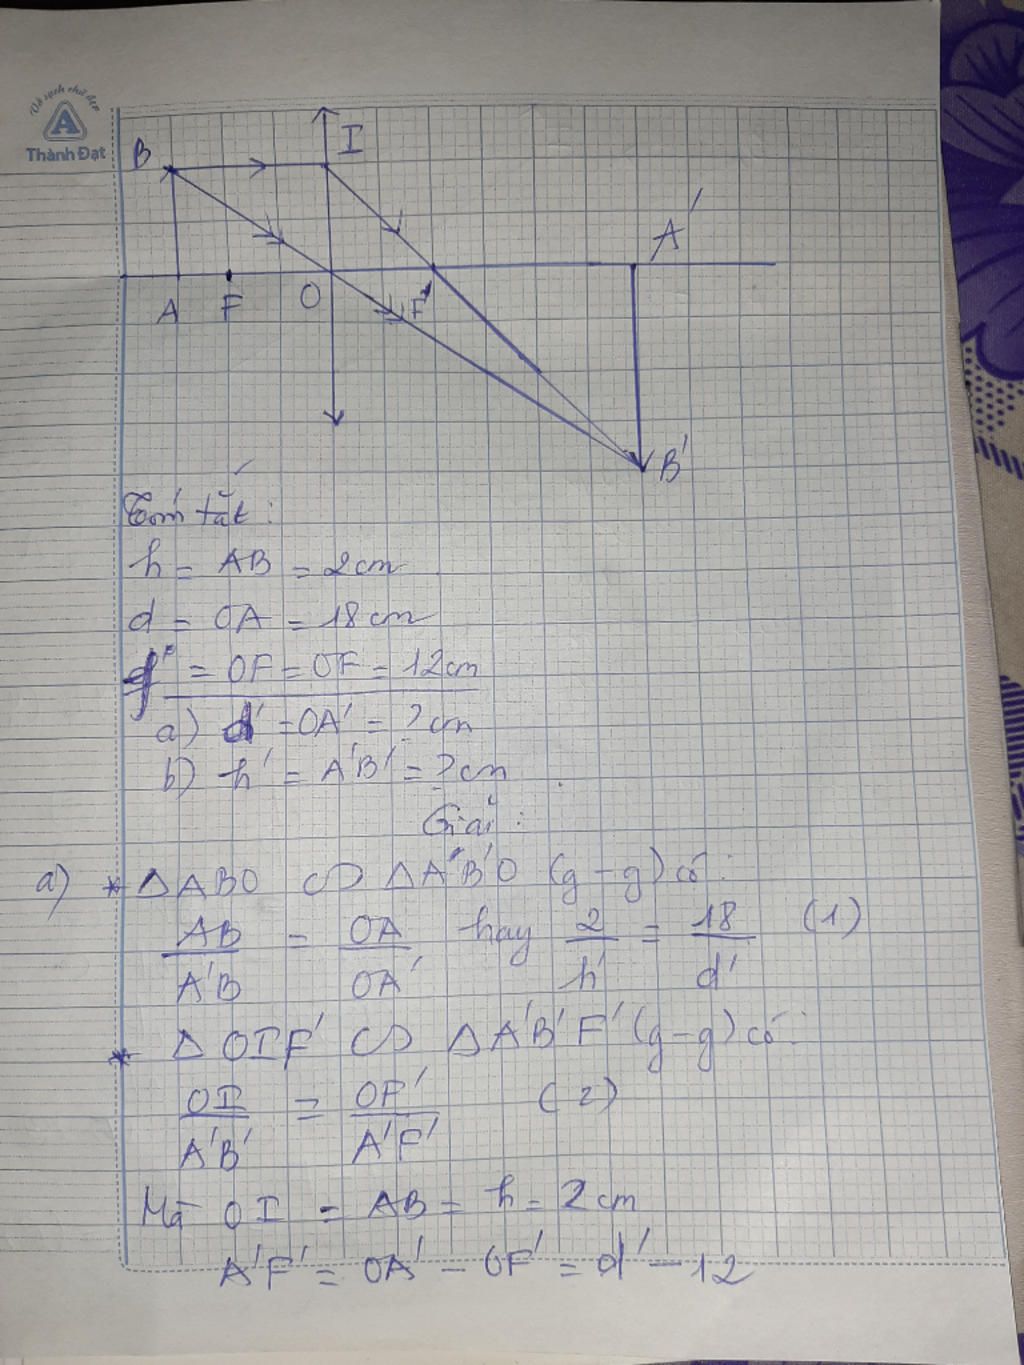 Vở sạch chữ đẹp
A
Thành Đạt
B I
A'
A F O F'
B'
Tóm tắt:
h = AB = 2cm
d = OA = 18cm
f = OF = OF' = 12cm
a) d' = OA' = ? cm
b) h' = A'B' = ? cm
Giải:
a) * ΔABO ∽ ΔA'B'O (g-g) có:
AB/A'B = OA/OA' hay 2/h' = 18/d' (1)
* ΔOIF' ∽ ΔA'B'F' (g-g) có:
OI/A'B' = OF'/A'F' (2)
Mà OI = AB = h = 2cm
A'F' = OA' - OF' = d' - 12